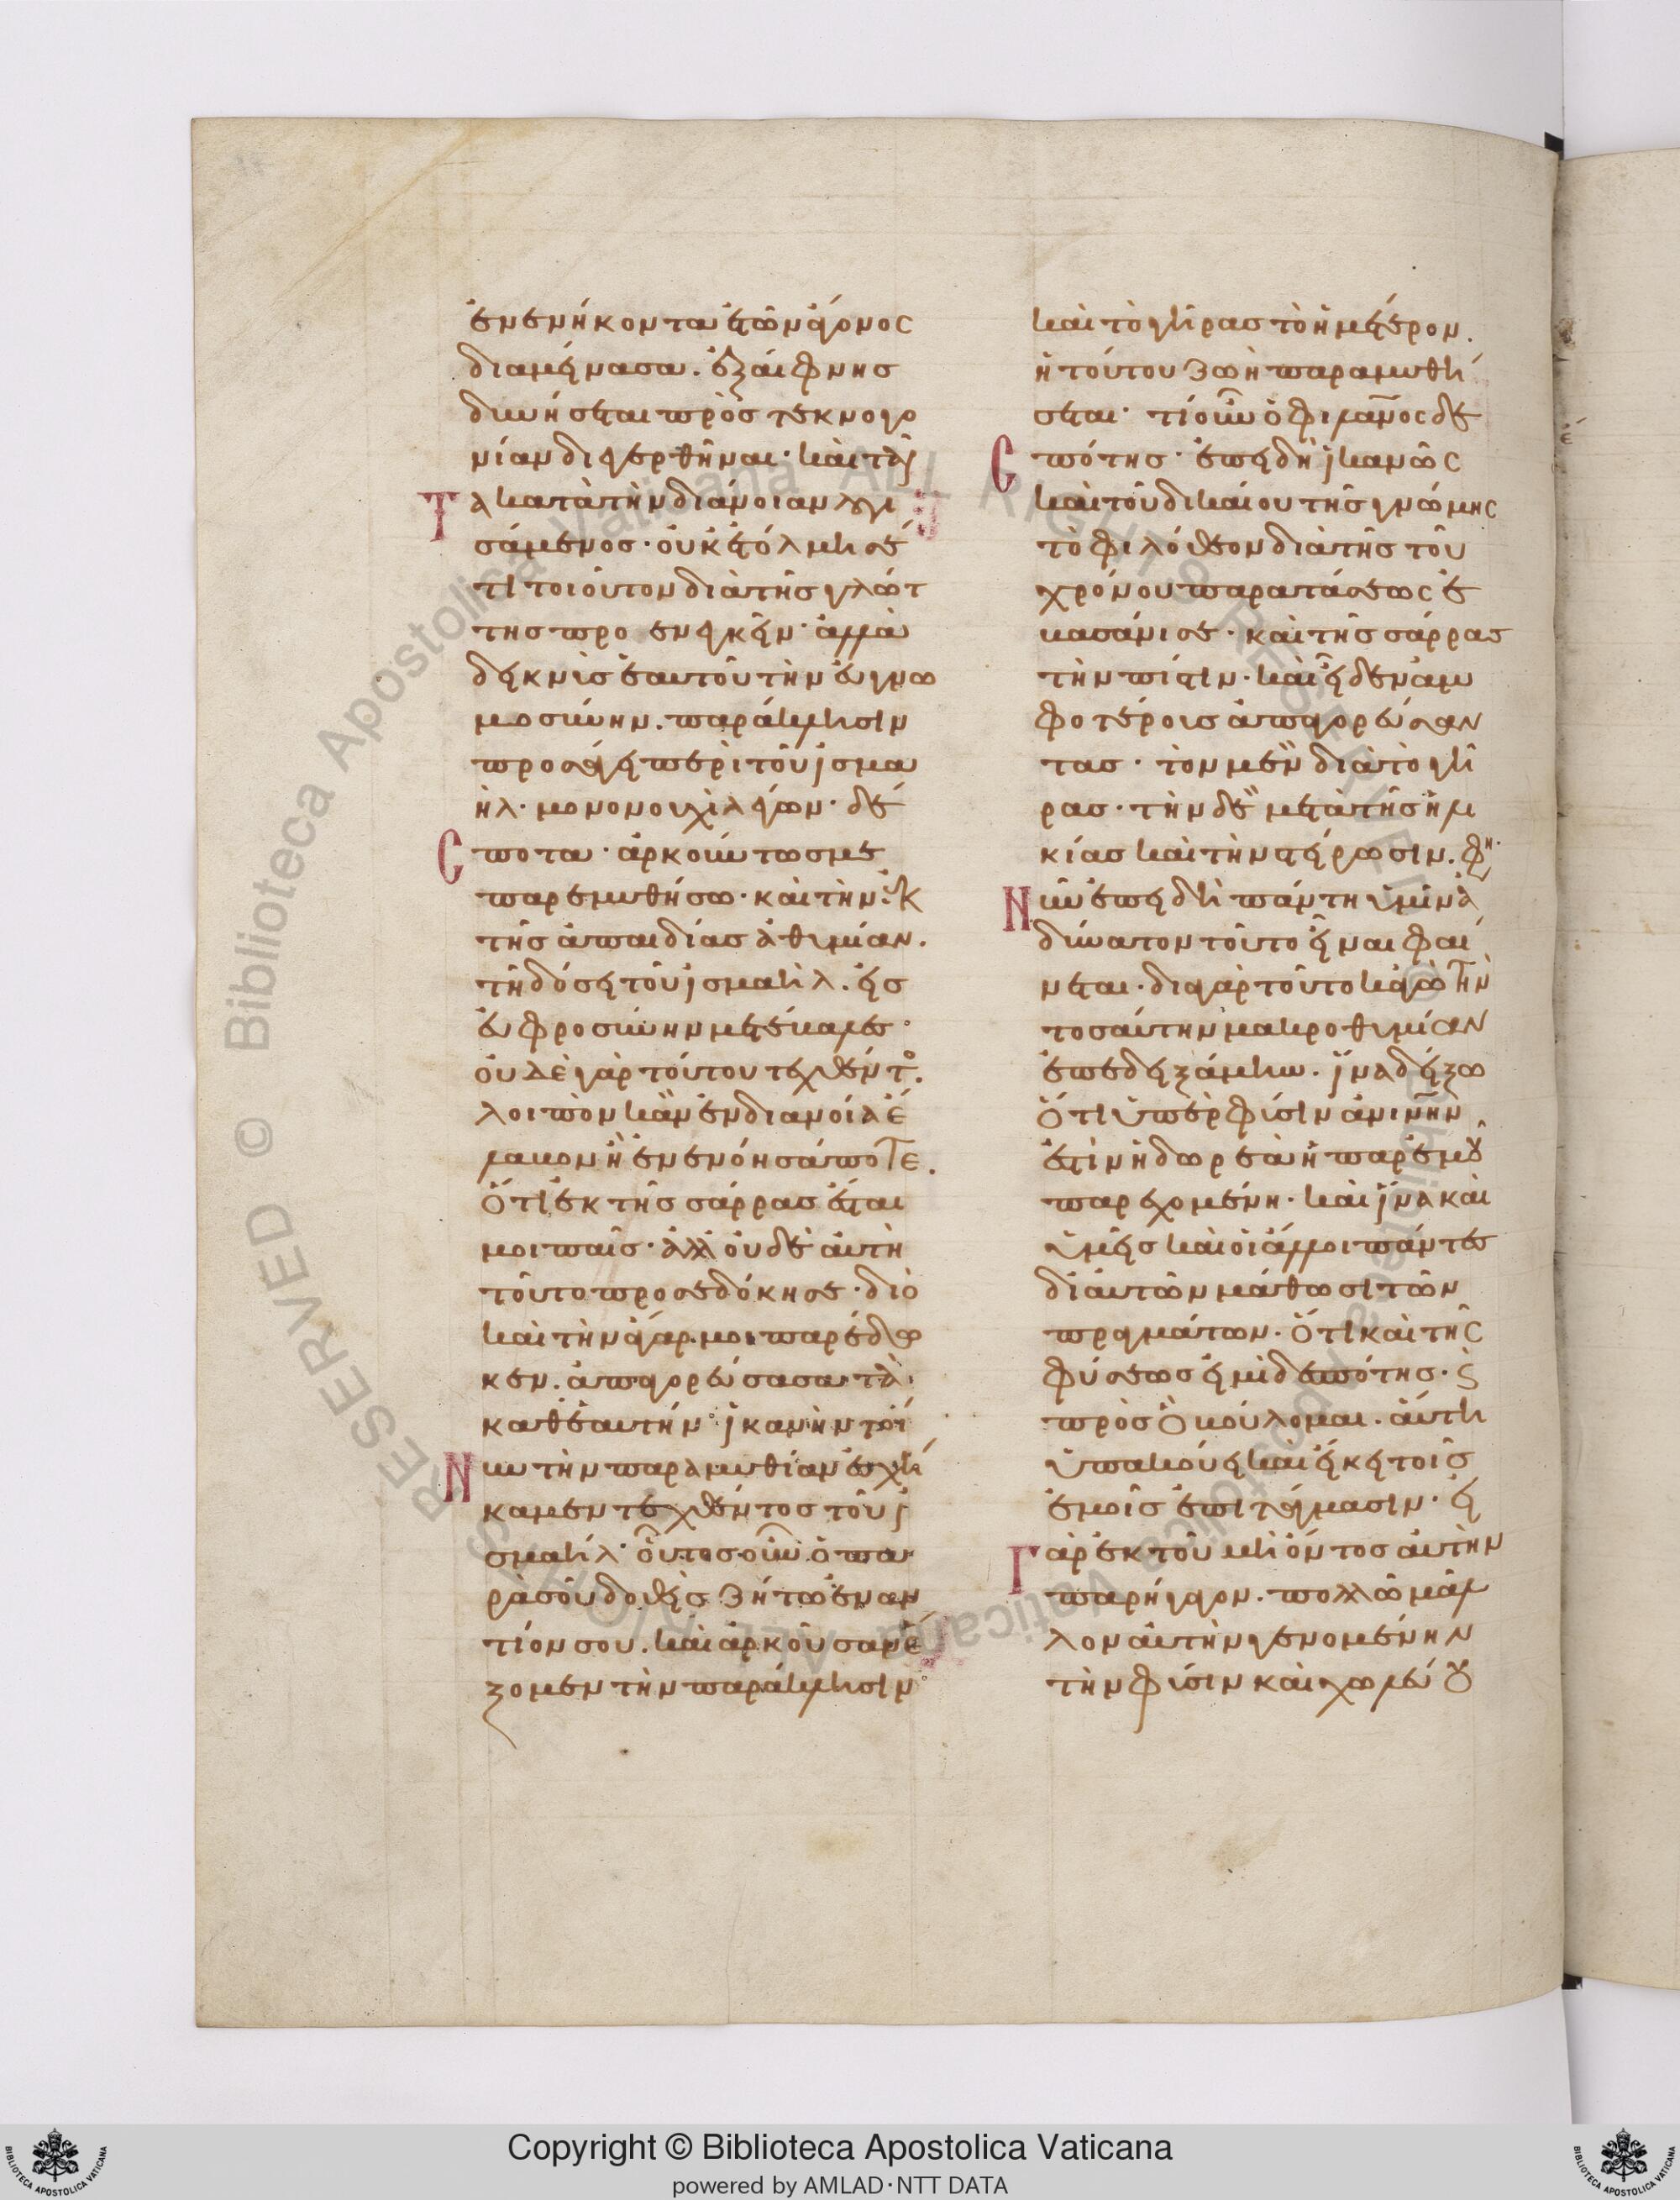 ἐνενήκοντα ἐτῶν ἄγονος
διαμείνασα. ἐξαίφνης
δυνήσεται πρὸς τεκνογο
νίαν διεγερθῆναι. καὶ ταῦ
Τ α κατὰ τὴν διάνοιαν λογι
σάμενος. οὐκ ἐτόλμησέ
τι τοιοῦτον διὰ τῆς γλώτ
της προενεγκεῖν. ἀλλὰ
δεικνὺς ἑαυτοῦ τὴν εὐγνω
μοσύνην. παράκλησιν
προσάγει περὶ τοῦ ἰσμα
ὴλ. μονονουχὶ λέγων. δέ
C ποτα. ἀρκούντως με
παρεμυθήσω. καὶ τὴν ἐκ
τῆς ἀπαιδίας ἀθυμίαν.
τῇ δόσει τοῦ ἰσμαὴλ. εἰς
εὐφροσύνην μετέβαλες.
οὐδὲ γὰρ τούτου τεχθέντος.
λοιπὸν κἂν ἐν διανοίᾳ ἔ
λαβον ἢ ἐνενόησα ποτε.
ὅτι ἐκ τῆς σάρρας ἔσται
μοι παῖς. ἀλλ' οὐδὲ αὐτὴ
τοῦτο προσεδόκησε. διὸ
καὶ τὴν ἄγαρ μοι παρέδω
κεν. ἀπαγορεύσασα τὰ
καθ' ἑαυτήν. ἱκανὴν τοί
Ν υν τὴν παραμυθίαν ἐσχή
καμεν τεχθέντος τοῦ ἰ
σμαήλ. οὗτος οὖν ὁ πα
ρὰ σοῦ δοθεὶς ζήτω ἐναν
τίον σου. καὶ ἀρκοῦσαν ἕ
ξομεν τὴν παράκλησιν.
καὶ τὸ γῆρας τὸ ἡμέτερον.
ἡ τούτου ζωὴ παραμυθή
σεται. τί οὖν ὁ φιλανος δε
C πότης. ἐπειδὴ ἱκανῶς
καὶ τοῦ δικαίου τῆς γνώμης
τὸ φιλόθεον διὰ τῆς τοῦ
χρόνου παρατάσεως ἐ
βασάνισε. καὶ τῆς σάρρας
τὴν πίστιν. καὶ εἶδεν ἀμ
φοτέροις ἀπαγορεύσαν
τας. τὸν μὲν διὰ τὸ γῆ
ρας. τὴν δὲ μετὰ τῆς ἡλι
κίας καὶ τὴν στείρωσιν. φη.
Ν ῦν ἐπειδὴ πάντη ὑμῖν ἀ
δύνατον τοῦτο εἶναι φαί
νεται. διὰ γὰρ τοῦτο κἀγὼ τὴν
τοσαύτην μακροθυμίαν
ἐπεδειξάμην. ἵνα δείξω
ὅτι ὑπὲρ φύσιν ἀνινην
ἐστὶν ἡ δωρεὰ ἡ παρ' ἐμοῦ
παρεχομένη. καὶ ἵνα καὶ
ὑμεῖς καὶ οἱ ἄλλοι πάντες
δι' αὐτῶν μάθωσι τῶν
πραγμάτων. ὅτι καὶ τῆς
φύσεως εἰμὶ δεσπότης. ϛ
πρὸς ὃ βούλομαι. αὕτη
ὑπακούει καὶ εἴκει τοῖς
ἐμοῖς ἐπιτάγμασιν. εἰ
Γ ὰρ ἐκ τοῦ μὴ ὄντος αὐτὴν
παρήγαγον. πολλῷ μᾶλ
λον αὐτὴν γενομένην
τὴν φύσιν καὶ χωλεύου
Copyright © Biblioteca Apostolica Vaticana
powered by AMLAD·NTT DATA